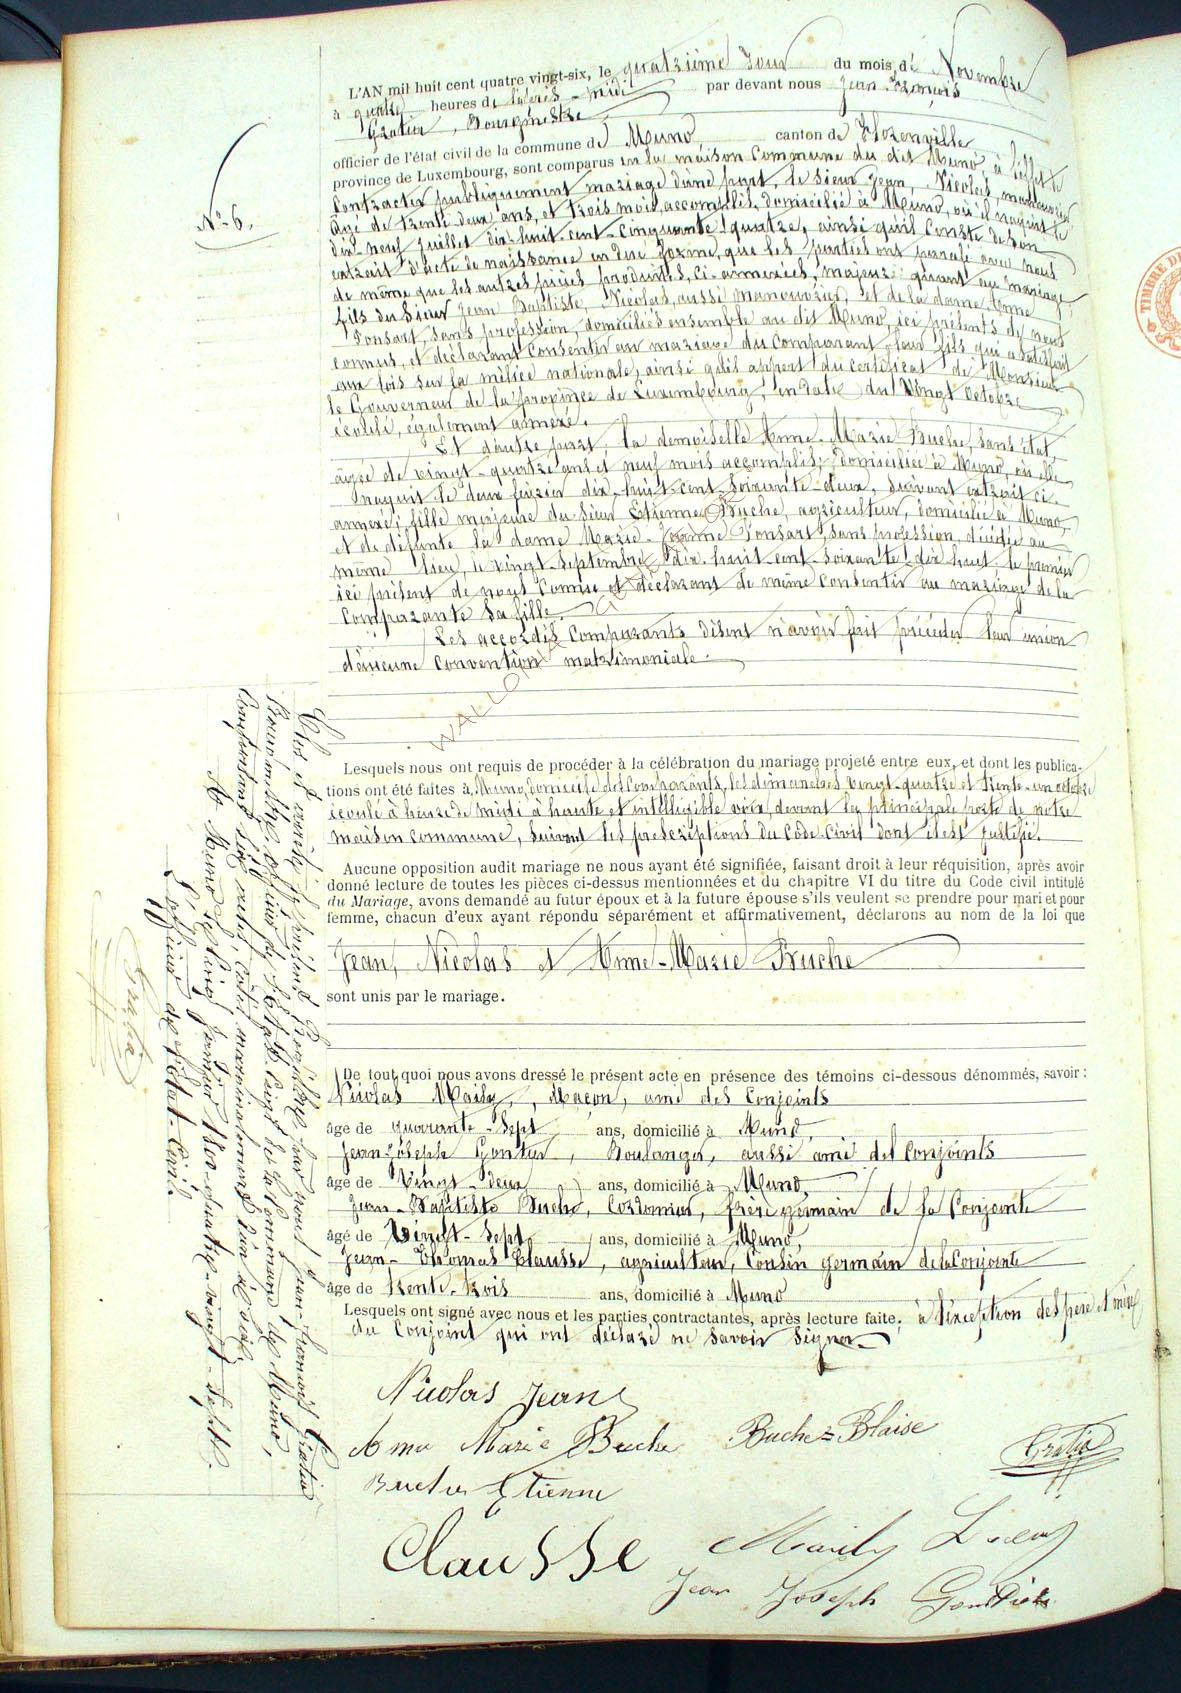 L'AN mil huit cent quatre vingt-six, le quatrième jour du mois de Novembre
à quatre heures de relevée par devant nous Jean François
Gratia, Bourgmestre
officier de l'état civil de la commune de Muno canton de Florenville
province de Luxembourg, sont comparus en la maison commune du dit Muno, à l'effet de
contracter publiquement mariage d'une part, le sieur Jean, Nicolas, manouvrier,
âgé de trente-deux ans, et trois mois accomplis, domicilié à Muno, où il naquit le
dix-neuf juillet dix-huit-cent-cinquante-quatre, ainsi qu'il conste de son
extrait d'acte de naissance en due forme, que les parties ont parafé avec nous
de même que les autres pièces produites, ci-annexées, majeur quant au mariage,
fils du Sieur Jean Baptiste, Nicolas, aussi manouvrier, et de la dame Anne
Ponsart, sans profession, domiciliés ensemble au dit Muno, ici présents de nous
connus, et déclarant consentir au mariage du comparant, leur fils qui a satisfait
aux lois sur la milice nationale, ainsi qu'il appert du certificat de Monsieur
le Gouverneur de la province de Luxembourg, en date du vingt octobre
écoulé, également annexé.
Et d'autre part, la demoiselle Anne-Marie Buche, sans état,
âgée de vingt-quatre ans et neuf mois accomplis, domiciliée à Muno, où elle
naquit le deux février dix-huit-cent-soixante-deux, suivant extrait ci-
annexé; fille majeure du sieur Etienne Buche, agriculteur, domicilié à Muno,
et de défunte la dame Marie-Jeanne Ponsart, sans profession, décédée au
même lieu, le vingt-septembre dix-huit-cent-soixante-dix-huit, le premier
ici présent de nous connu et déclarant de même consentir au mariage de la
comparante sa fille.
Les accordés comparants disent n'avoir fait précéder leur union
d'aucune convention matrimoniale.
WALLONIA
Lesquels nous ont requis de procéder à la célébration du mariage projeté entre eux, et dont les publica-
tions ont été faites à Muno, domicile des comparants, les dimanches vingt-quatre et trente-un octobre
écoulé à heure de midi à haute et intelligible voix, devant la principale porte de notre
maison commune, suivant les prescriptions du Code-Civil dont il est justifié.
Aucune opposition audit mariage ne nous ayant été signifiée, faisant droit à leur réquisition, après avoir
donné lecture de toutes les pièces ci-dessus mentionnées et du chapitre VI du titre du Code civil intitulé
du Mariage, avons demandé au futur époux et à la future épouse s'ils veulent se prendre pour mari et pour
femme, chacun d'eux ayant répondu séparément et affirmativement, déclarons au nom de la loi que
Jean, Nicolas et Anne-Marie Buche
sont unis par le mariage.
De tout quoi nous avons dressé le présent acte en présence des témoins ci-dessous dénommés, savoir :
Nicolas Maily, Maçon, ami des Conjoints
âge de quarante-sept ans, domicilié à Muno,
Jean-Joseph Boulanger, aussi ami des Conjoints
âge de vingt-deux ans, domicilié à Muno,
Jean-Baptiste Buche, Cordonnier, frère germain de la Conjointe
âgé de vingt-sept ans, domicilié à Muno,
Jean-Thomas Clausse, agriculteur, Cousin germain de la Conjointe
âge de trente-trois ans, domicilié à Muno
Lesquels ont signé avec nous et les parties contractantes, après lecture faite, à l'exception des père et mère
du Conjoint qui ont déclaré ne savoir signer
Nicolas Jean
Anna Marie Buche Buche Blaise
Gratia
Buche Etienne
Clausse Maily
Jean Joseph
N° 6.
Clos et arrêté le présent Registre par nous Jean-François Gratia
Bourgmestre, officier de l'Etat Civil de la commune de Muno,
contenant six actes, cotés marginalement d'un à six.
A Muno, le cinq janvier 1800-quatre-vingt-sept.
L'officier de l'Etat-Civil
Gratia
TIMBRE DE